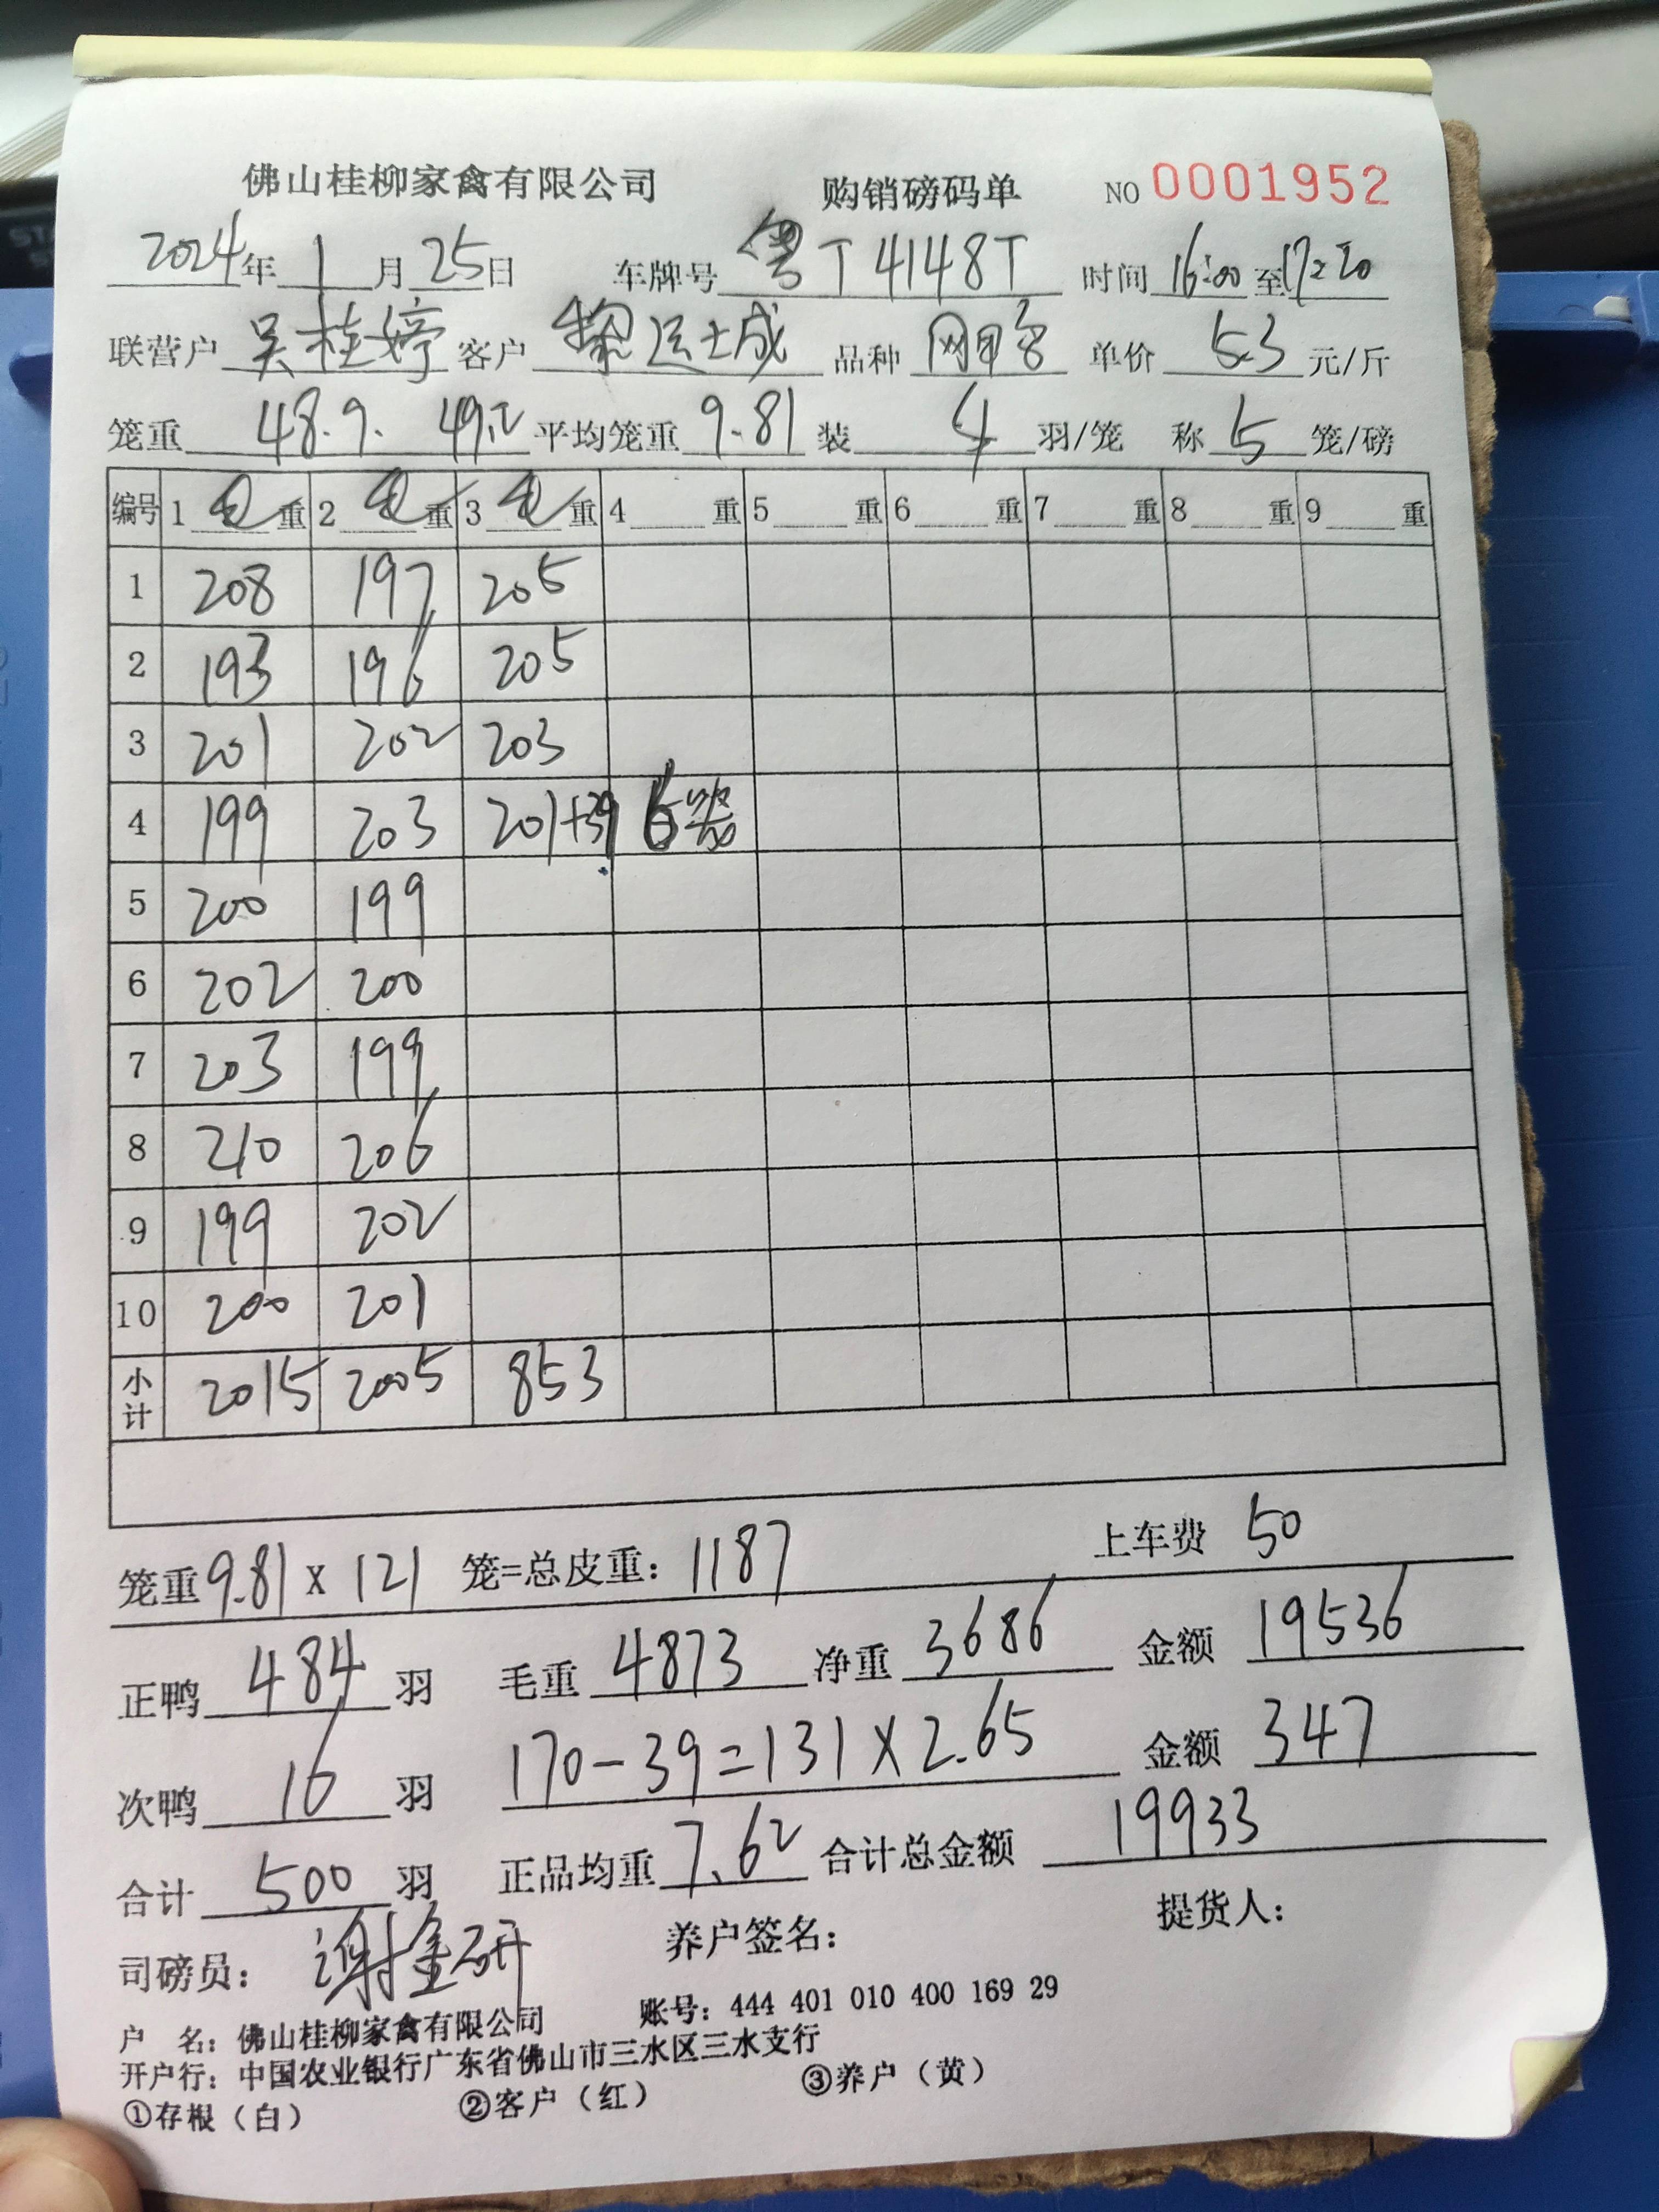 佛山桂柳家禽有限公司 购销磅码单 NO 0001952
2024年 1 月 25 日 车牌号 粤T4148T 时间 16:00 至 17:20
联营户 吴桂婷 客户 黎运成 品种 单价 5.3 元/斤
笼重 48.9. 49.2 平均笼重 9.81 装 4 羽/笼 称 5 笼/磅
编号 1 重 2 重 3 重 4 重 5 重 6 重 7 重 8 重 9 重
1 208 197 205
2 193 196 205
3 201 202 203
4 199 203 201+39 6
5 200 199
6 202 200
7 203 199
8 210 206
9 199 202
10 200 201
小计 2015 2005 853
笼重 9.81 x 121 笼=总皮重: 1187 上车费 50
正鸭 484 羽 毛重 4873 净重 3686 金额 19536
次鸭 16 羽 170-39=131×2.65 金额 347
合计 500 羽 正品均重 7.62 合计总金额 19933
司磅员: 谢金研 养户签名: 提货人:
户 名: 佛山桂柳家禽有限公司 账号: 444 401 010 400 169 29
开户行: 中国农业银行广东省佛山市三水区三水支行
①存根（白） ②客户（红） ③养户（黄）